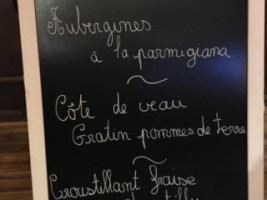 Aubergines
à la parmigiana
Côte de veau
Gratin pommes de terre
Croustillant fraise